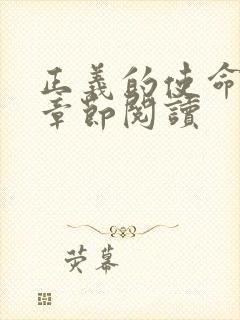 正義的使命
章節閱讀
荧幕